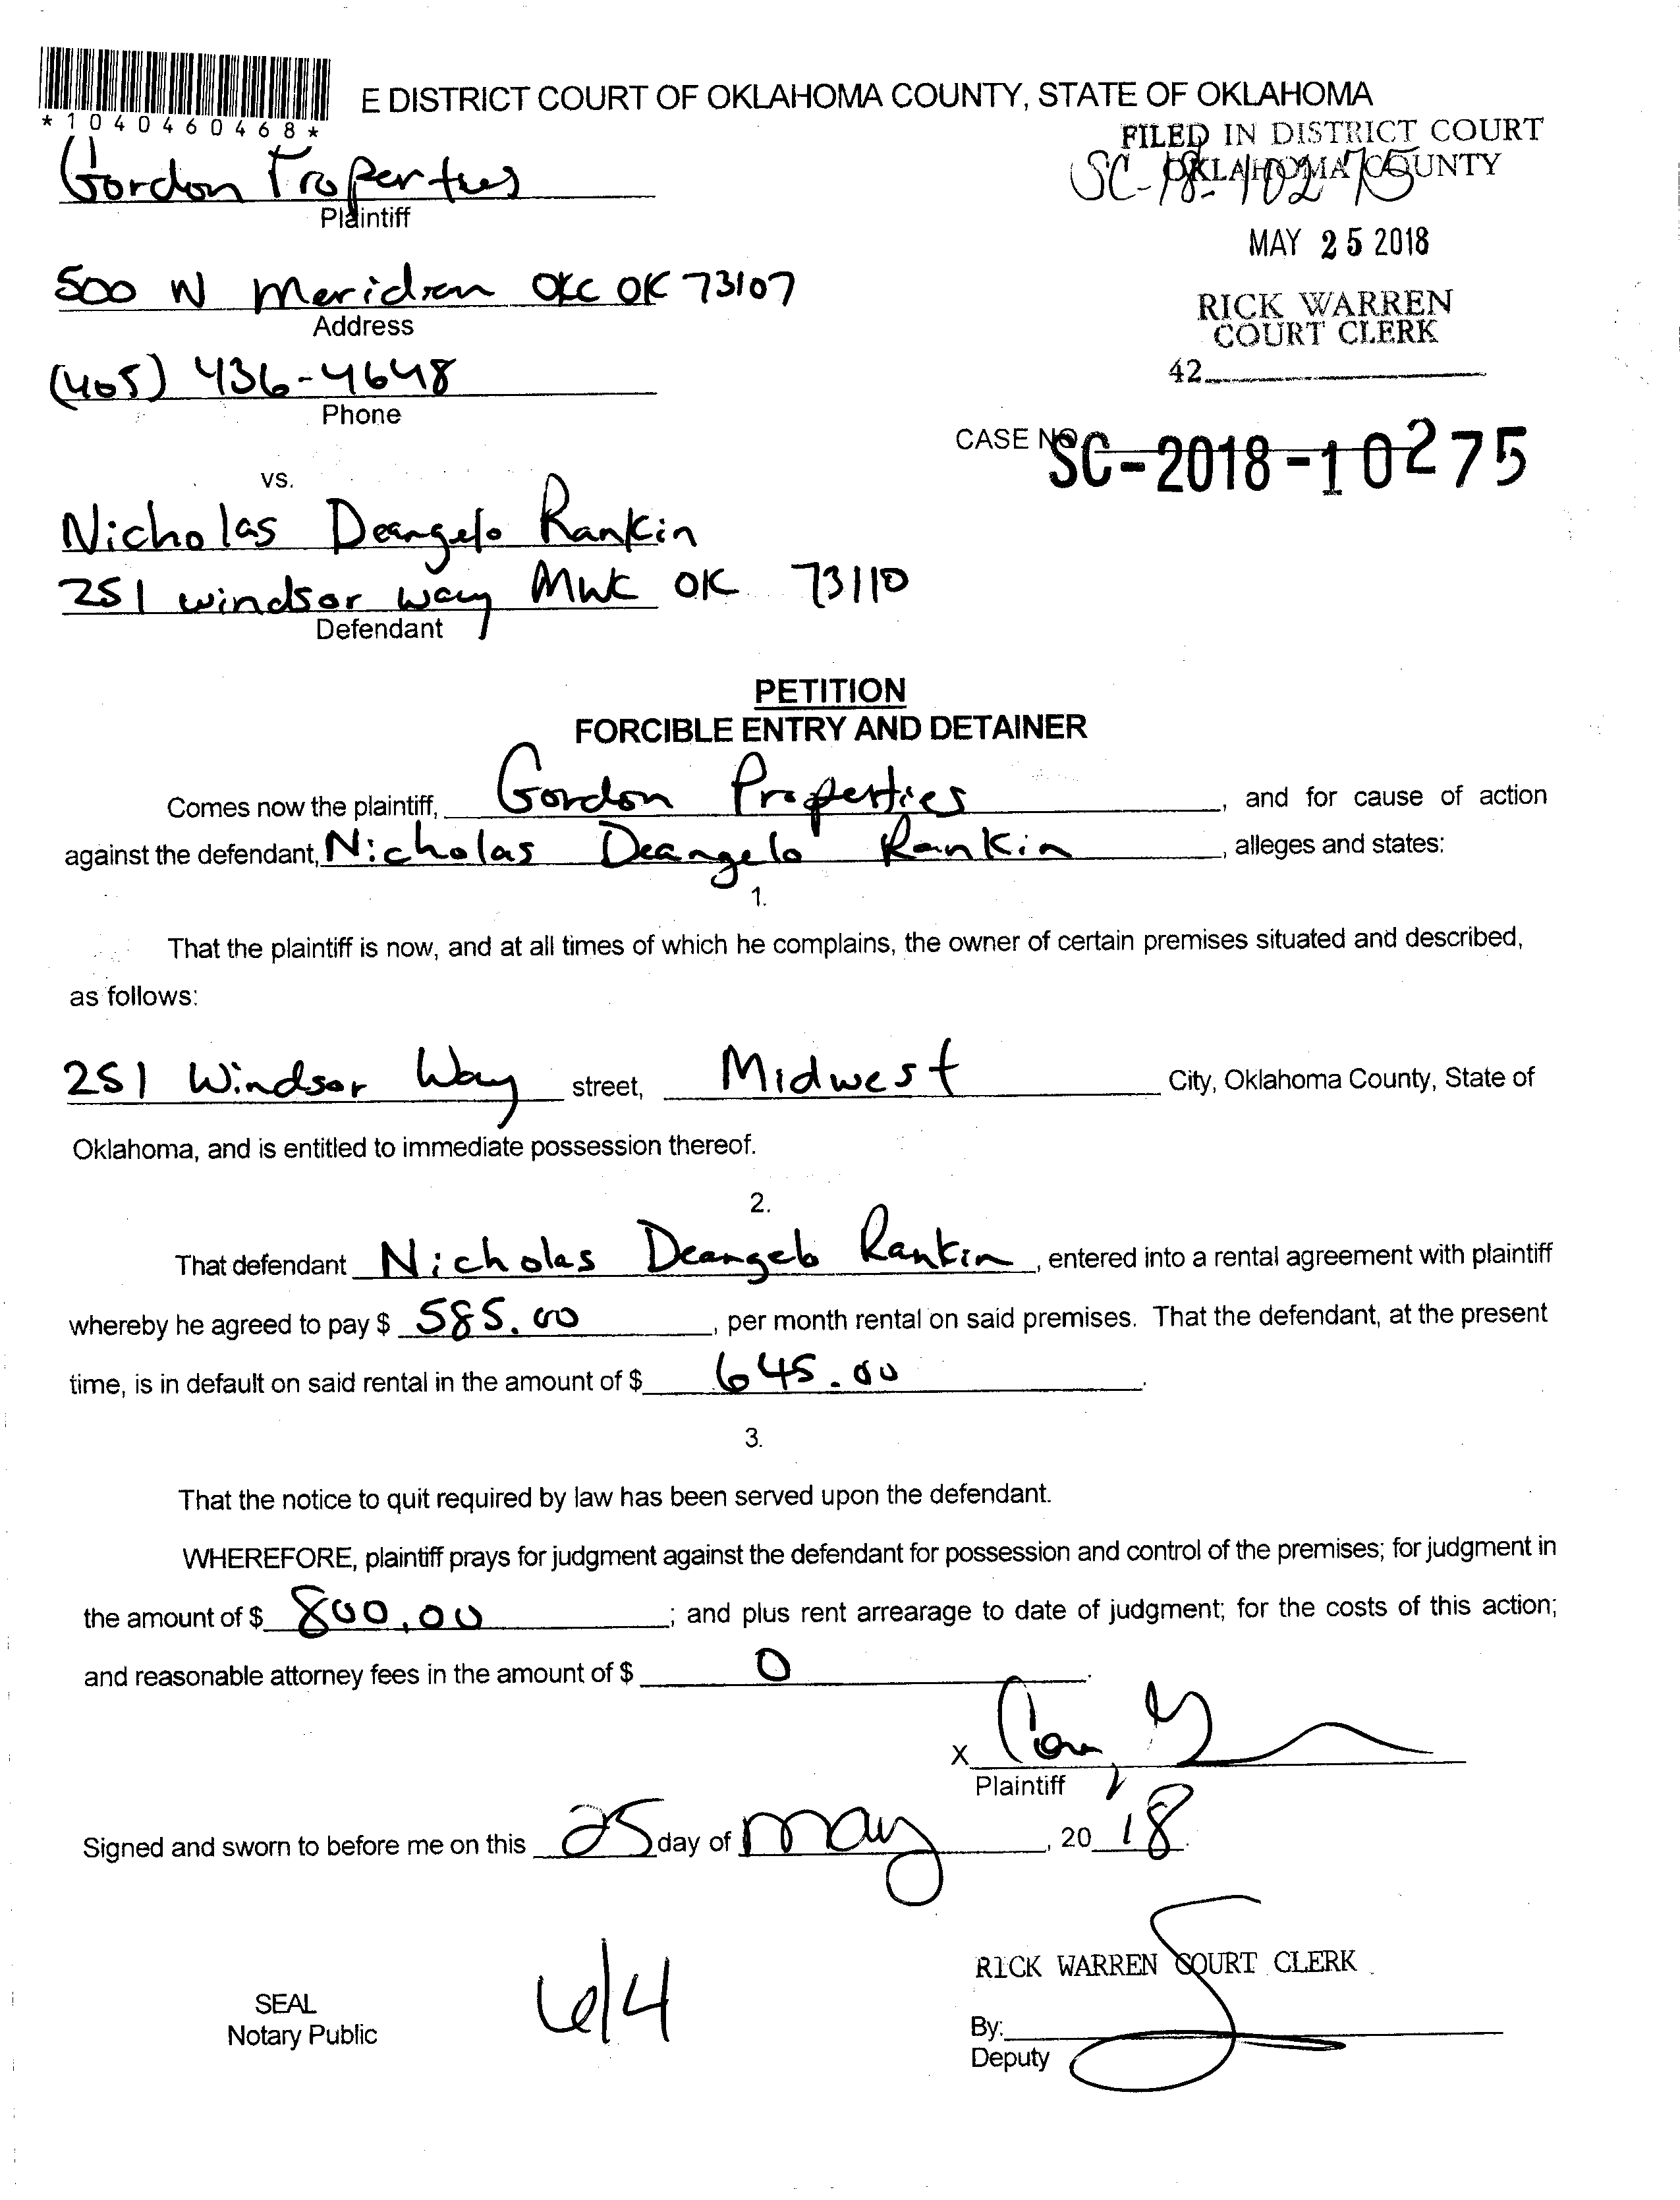 E DISTRICT COURT OF OKLAHOMA COUNTY, STATE OF OKLAHOMA
*1040460468*
FILED IN DISTRICT COURT
OKLAHOMA COUNTY
SC-18-10275
Gordon Properties
Plaintiff
MAY 25 2018
500 N Meridian OKC OK 73107
Address
RICK WARREN
COURT CLERK
42
(405) 436-4648
Phone
CASE NO. SC-2018-10275
vs.
Nicholas Deangelo Rankin
251 windsor way MWC OK 73110
Defendant
PETITION
FORCIBLE ENTRY AND DETAINER
Comes now the plaintiff, Gordon Properties, and for cause of action
against the defendant, Nicholas Deangelo Rankin, alleges and states:
1.
That the plaintiff is now, and at all times of which he complains, the owner of certain premises situated and described,
as follows:
251 Windsor Way street, Midwest City, Oklahoma County, State of
Oklahoma, and is entitled to immediate possession thereof.
2.
That defendant Nicholas Deangelo Rankin, entered into a rental agreement with plaintiff
whereby he agreed to pay $ 585.00, per month rental on said premises. That the defendant, at the present
time, is in default on said rental in the amount of $ 645.00.
3.
That the notice to quit required by law has been served upon the defendant.
WHEREFORE, plaintiff prays for judgment against the defendant for possession and control of the premises; for judgment in
the amount of $ 800.00; and plus rent arrearage to date of judgment; for the costs of this action;
and reasonable attorney fees in the amount of $ 0.
X
Plaintiff
Signed and sworn to before me on this 25 day of may, 20 18.
6/4
RICK WARREN COURT CLERK
SEAL
Notary Public
By:
Deputy